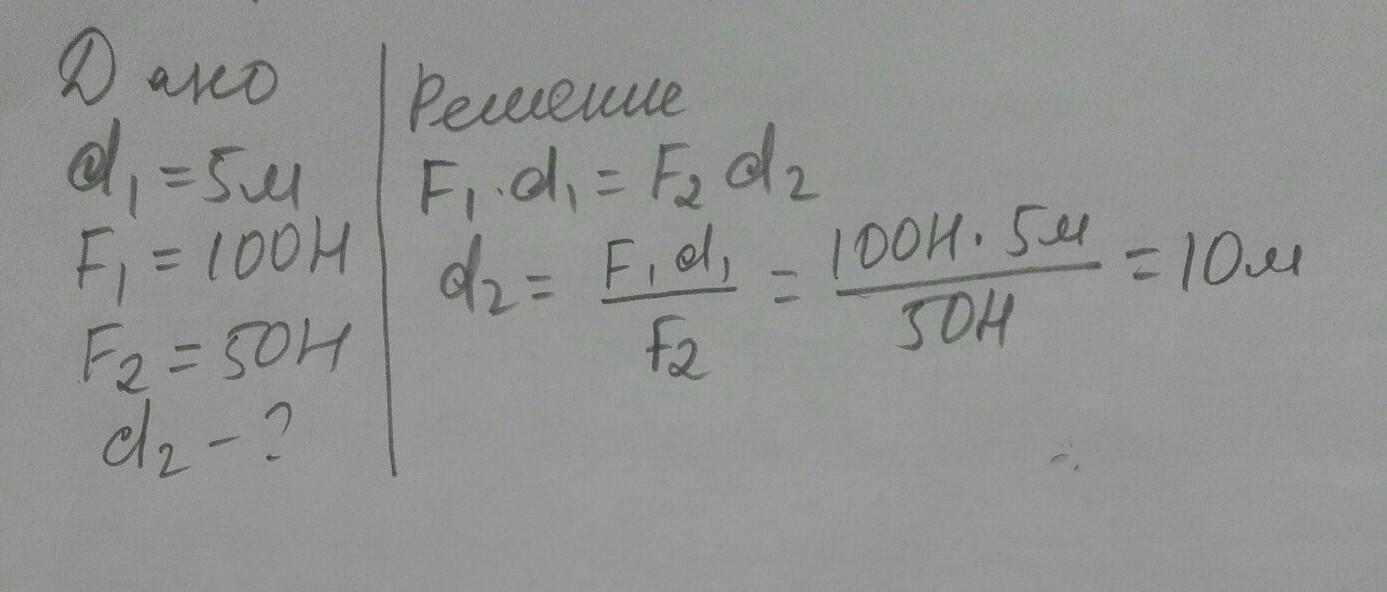 Дано
d₁ = 5м
F₁ = 100Н
F₂ = 50Н
d₂ - ?
Решение
F₁ · d₁ = F₂ d₂
d₂ = F₁ d₁ / F₂ = 100Н · 5м / 50Н = 10м